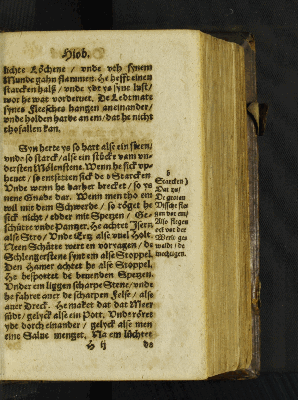 Hiob.
lüchte Löchene / vnde vth synem
Munde gahn flammen. He hefft einen
starcken halß / vnde ydt ys syne lust /
wor he wat vorderuet. De Ledtmate
synes Fleesches hangen aneinander /
vnde holden harde an em / dat he nicht
thofallen kan.
Syn herte ys so hart alse ein steen /
vnde so starck / alse ein stücke vam vn-
dersten Mölenstene. Wenn he sick vp-
heuet / so entsetten sick de Starcken
Vnde wenn he darher brecket / so ys
nene Gnade dar. Wenn men tho em
wil mit dem Schwerde / so röget he
sick nicht / edder mit Spetzen / Ge-
schütte vnde Pantzer. He achtet Isern
alse Stro / Vnde Ertz alse vuel Holt.
Neen Schütte wert en voryagen / de
Schlengerstene synt em alse Stoppel.
Den Hamer achtet he alse Stoppel.
He bespottet de beuenden Spetzen.
Vnder em liggen scharpe Stene / vnde
he fahret auer de scharpen Felse / alse
auer Dreck. He maket dat dat Meer
südet / gelyck alse ein Pott. Vnde röret
ydt dorch einander / gelyck alse men
eine Salue menget. Na em lüchtet
H ij
de
b
Starcken)
Dat ys /
De groten
Vissche
Alse